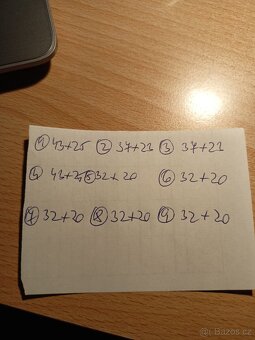 ① 43+25 ② 37+23 ③ 37+23
④ 43+25 ⑤ 32+20 ⑥ 32+20
⑦ 32+20 ⑧ 32+20 ⑨ 32+20
Bazoš.cz